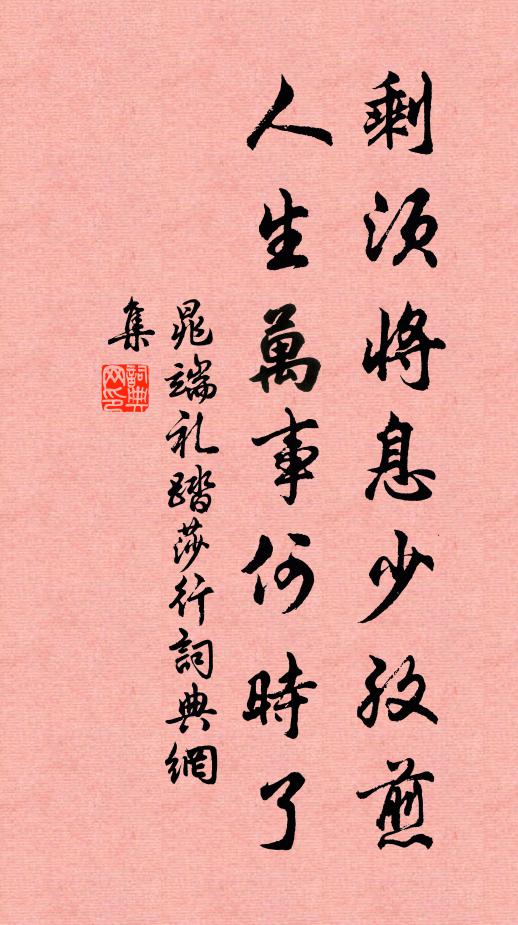 剩須將息少孜煎
人生萬事何時了
晁端礼踏莎行詞典網
集
詞典網印